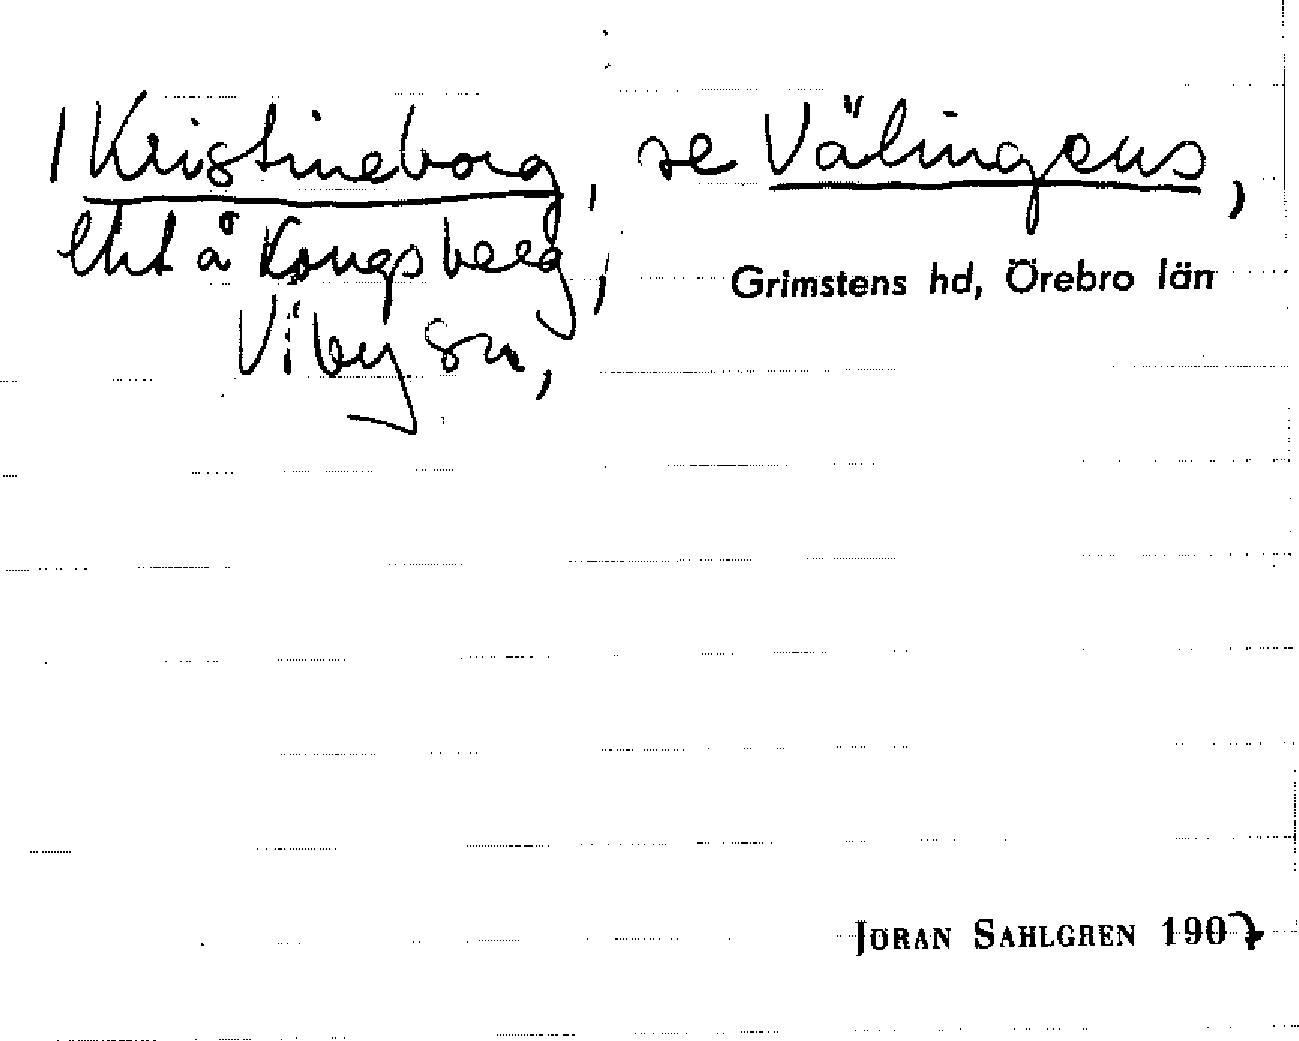 1 Kristineborg, se Välingens,
lht å Kongsberg,
Grimstens hd, Örebro län
Viby sn,
JÖRAN SAHLGREN 1907